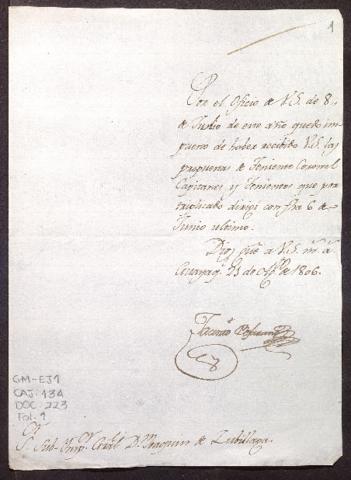 1
Por el Oficio de V.S. de 8.
de Julio de este año quedo im-
puesto de haber recibido V.S. las
propuestas de Teniente Coronel
Capitanes, y Tenientes que por
triplicado dirigi con fha 6 de
Junio ultimo.
Dios gue a V.S. ms. as.
23 de de 1806.
Jacinto
GM-EJ1
CAJ: 134
DOC: 223
Fol. 1
Sr. Sub-Inspr. Gral. Dn. Joaquin de Zubillaga.